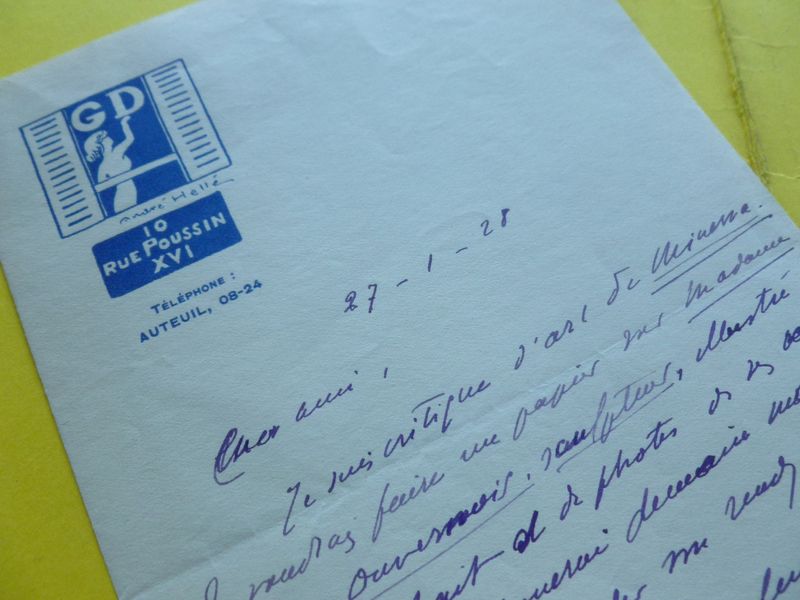 GD
André Hellé
10
RUE POUSSIN
XVI
TÉLÉPHONE :
AUTEUIL, 08-24
27 - 1 - 28
Cher ami,
Je suis critique d'art de Minerva.
voudrais faire un papier sur Madame
sculpteur, illustré
et de photos de ses
demain